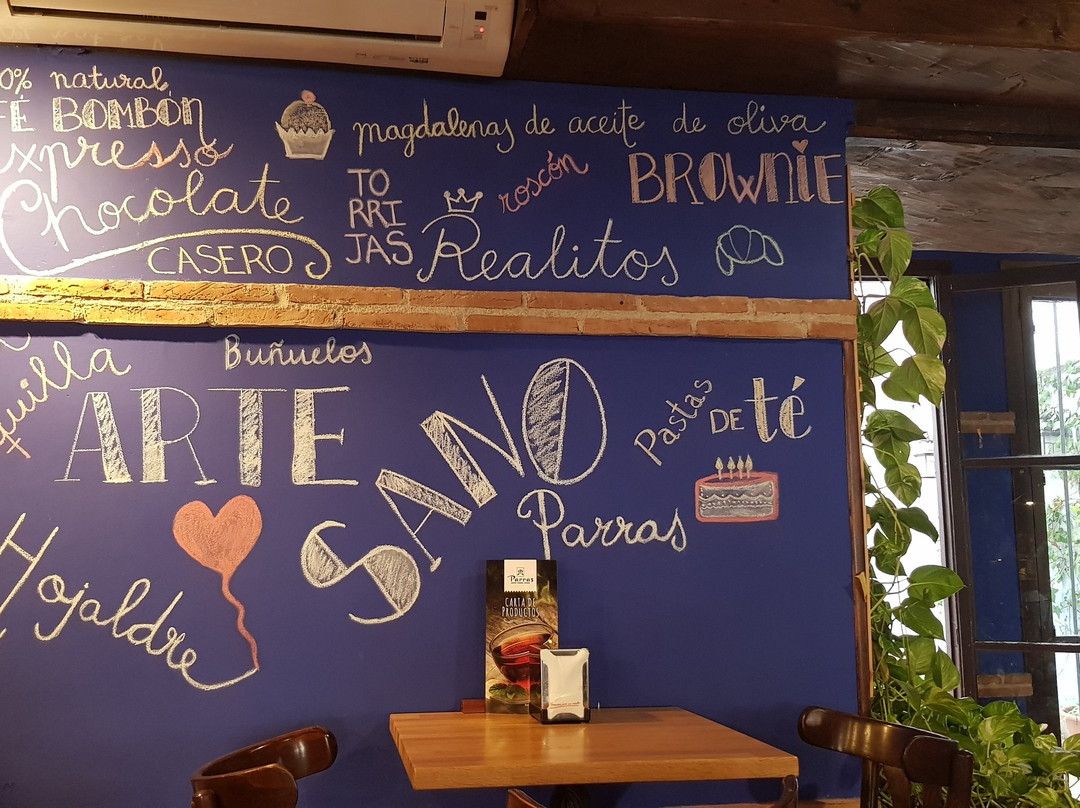 0% natural
FÉ BOMBÓN
xpresso
Chocolate
CASERO
magdalenas de aceite de oliva
TO
RRI
JAS
roscón
BROWNIE
Realitos
quilla
Buñuelos
ARTE
SANO
Parras
Pastas
DE té
Hojaldre
Parras
CARTA DE
PRODUCTOS